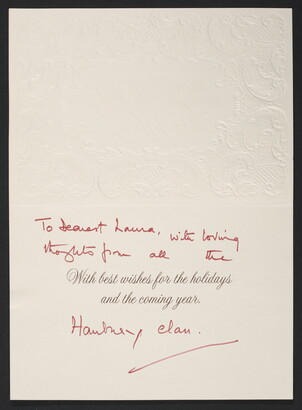 To dearest Laura, with loving
thoughts from all the
With best wishes for the holidays
and the coming year.
clan.